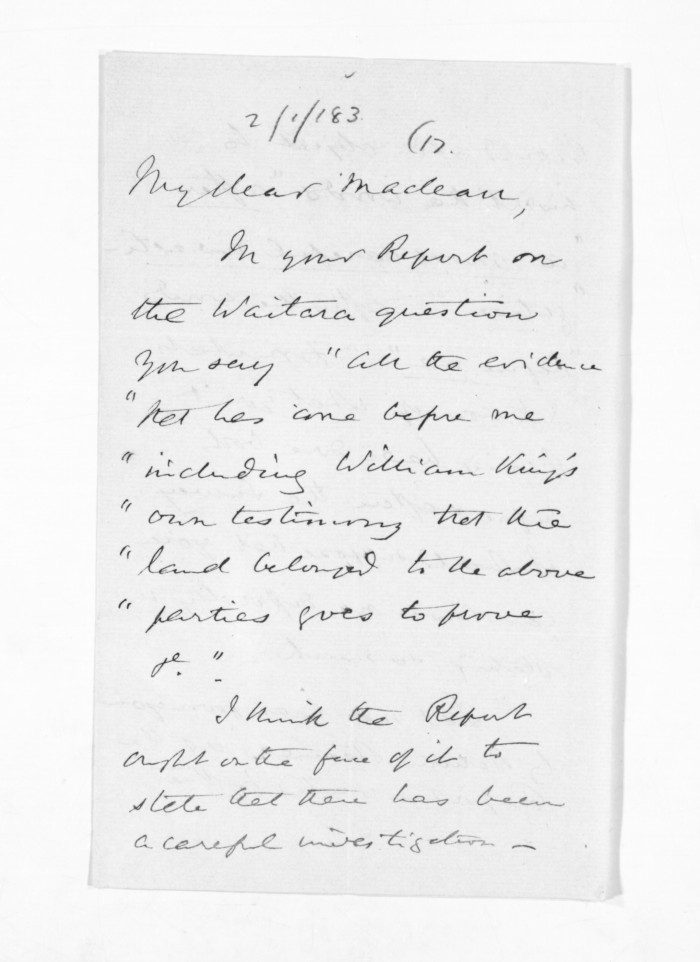 2/1/183
(17.
My dear Maclean,
In your Report on
the Waitara question
you say "all the evidence
"that has come before me
"including William King's
"own testimony that the
"land belonged to the above
"parties goes to prove
&c."
I think the Report
ought on the face of it to
state that there has been
a careful investigation —